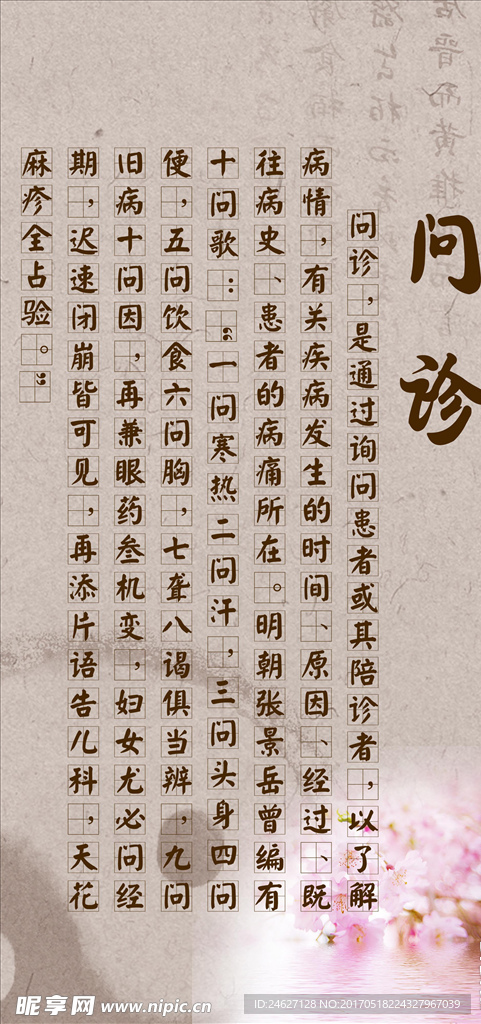 问诊
问诊，是通过询问患者或其陪诊者，以了解
病情，有关疾病发生的时间、原因、经过、既
往病史、患者的病痛所在。明朝张景岳曾编有
十问歌：“一问寒热二问汗，三问头身四问
便，五问饮食六问胸，七聋八谒俱当辨，九问
旧病十问因，再兼眼药叁机变，妇女尤必问经
期，迟速闭崩皆可见，再添片语告儿科，天花
麻疹全占验。”
昵享网 www.nipic.cn
ID:24627128 NO:20170518224327967039